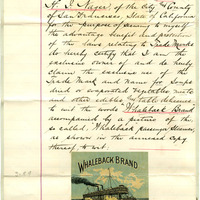 H. I. Nager, of the City & County
of San Francisco, State of California
for the purpose of securing to myself
the advantage benefit and protection
of the laws relating to Trade Marks
do hereby certify that I am the
exclusive owner of and do hereby
claim the exclusive use of the
Trade Mark and name for Soups
dried or evaporated vegetables, fruits
and other edibles and table delicacies
To wit the words Whaleback Brand
accompanied by a picture of the
so called, Whaleback passenger Steamer,
as shown in the annexed copy
thereof, to wit:
WHALEBACK BRAND